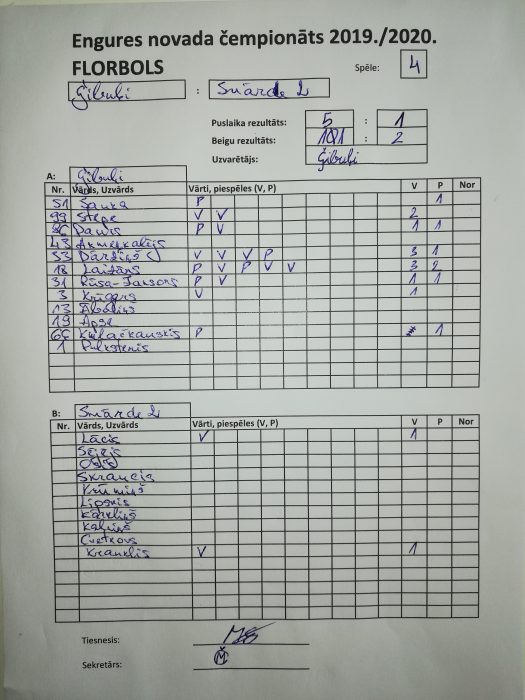 Engures novada čempionāts 2019./2020.
FLORBOLS
Spēle: 4
Ģibuļi : Smārde 2
Puslaika rezultāts: 5 : 1
Beigu rezultāts: : 2
Uzvarētājs: Ģibuļi
A: Ģibuļi
Nr. Vārds, Uzvārds Vārti, piespēles (V, P) V P Nor
51 Sauka P 1
99 Stepe V V 2
Dauvis P V 1 1
43
53 Dārziņš V V V P 3 1
18 Laizāns P V P V V 3 2
31 Rūsa-Jansons P V 1 1
3 Krūgers V 1
13 Āboliņš
19 Apse
66 P 1
1 Pulkstenis
B: Smārde 2
Nr. Vārds, Uzvārds Vārti, piespēles (V, P) V P Nor
Lācis V 1
Sējējs
Osis
Skraucis
Krūmiņš
Lipskis
Kārkliņš
Kalniņš
Cvetkovs
Krauklis V 1
Tiesnesis:
Sekretārs: